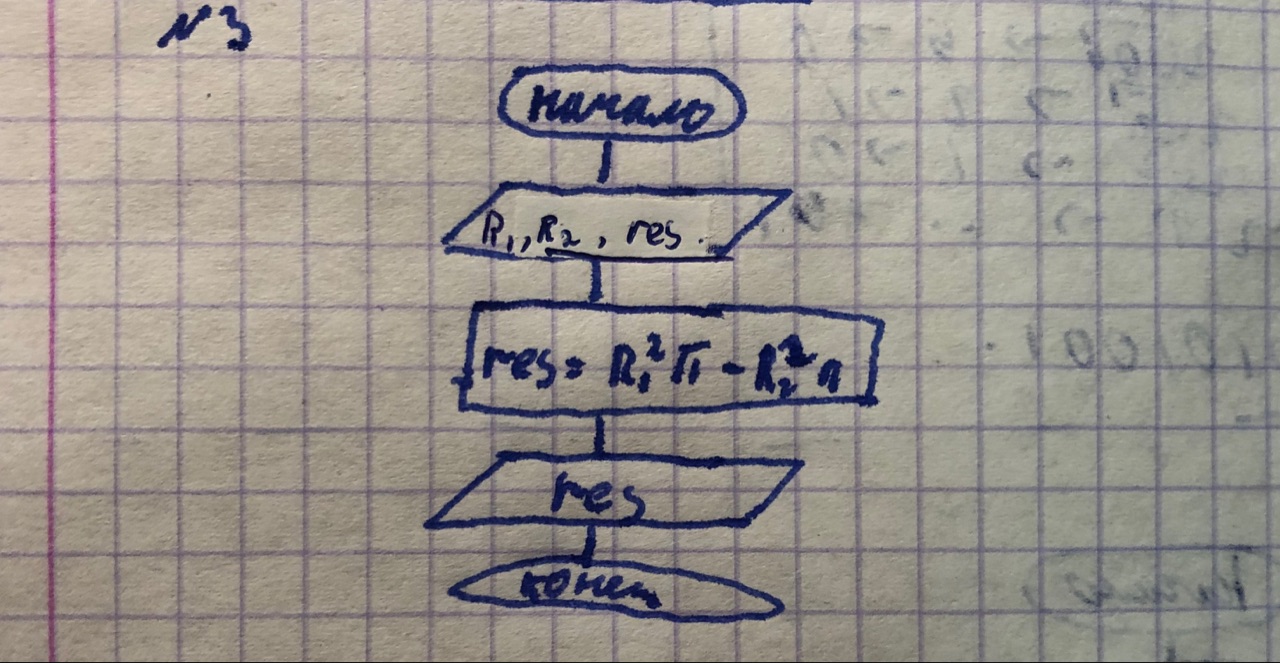 №3
начало
R₁, R₂, res.
res = R₁²π - R₂²π
res
конец